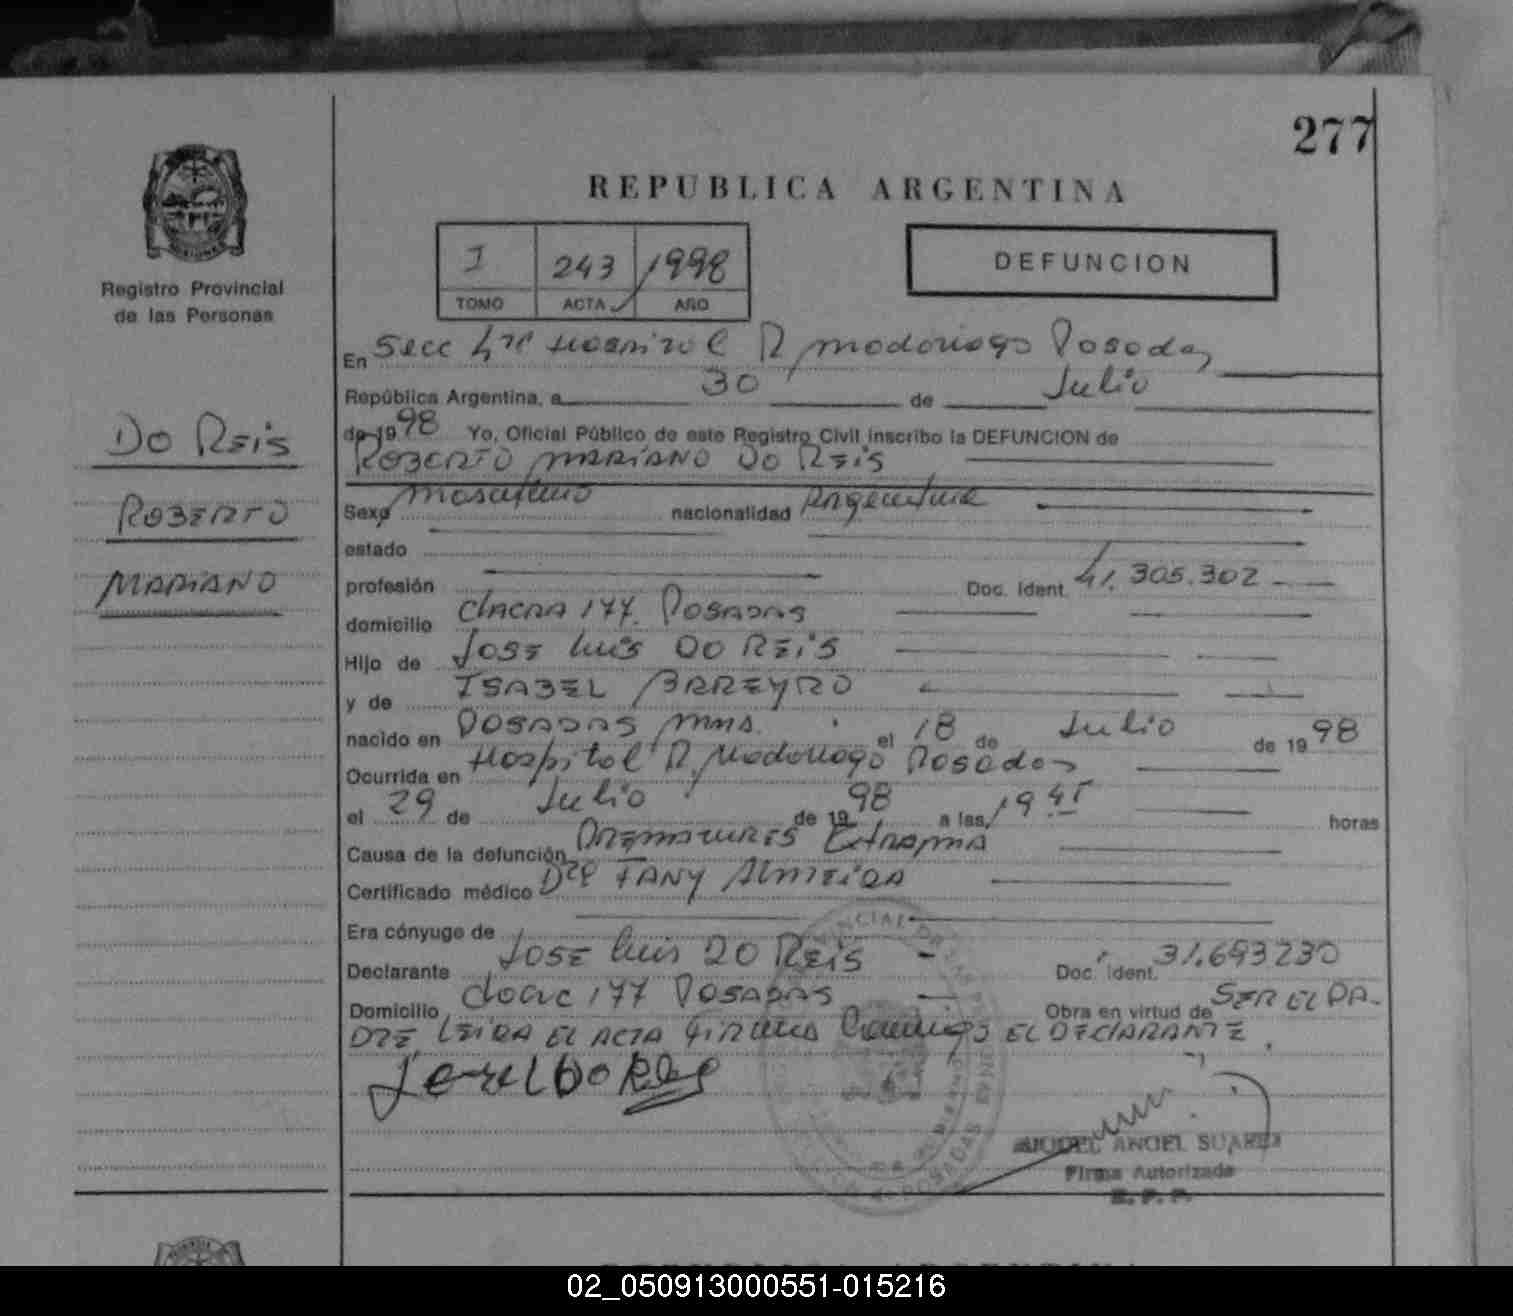 277
REPUBLICA ARGENTINA
I 243 1998
TOMO ACTA AÑO
DEFUNCION
Registro Provincial
de las Personas
DO REIS
ROBERTO
MARIANO
En Secc 4ta Hospital R. Madariaga Posadas
República Argentina, a 30 de Julio
de 1998 Yo, Oficial Público de este Registro Civil inscribo la DEFUNCION de
ROBERTO MARIANO DO REIS
Sexo masculino nacionalidad Argentina
estado
profesión Doc. Ident. 41.305.302
domicilio CHACRA 177 POSADAS
Hijo de JOSE Luis DO REIS
y de ISABEL BARREYRO
nacido en POSADAS MNES. el 18 de Julio de 1998
Ocurrida en Hospital R. Madariaga Posadas
el 29 de Julio de 1998 a las 19 45 horas
Causa de la defunción Prematurez Extrema
Certificado médico Dra FANY ALMEIDA
Era cónyuge de
Declarante JOSE Luis DO REIS Doc. Ident. 31.693230
Domicilio 177 POSADAS Obra en virtud de SER EL PA-
DRE, LEIDA EL ACTA FIRMA Conmigo EL DECLARANTE.
MIGUEL ANGEL SUAREZ
Firma Autorizada
R. P. P.
02_050913000551-015216